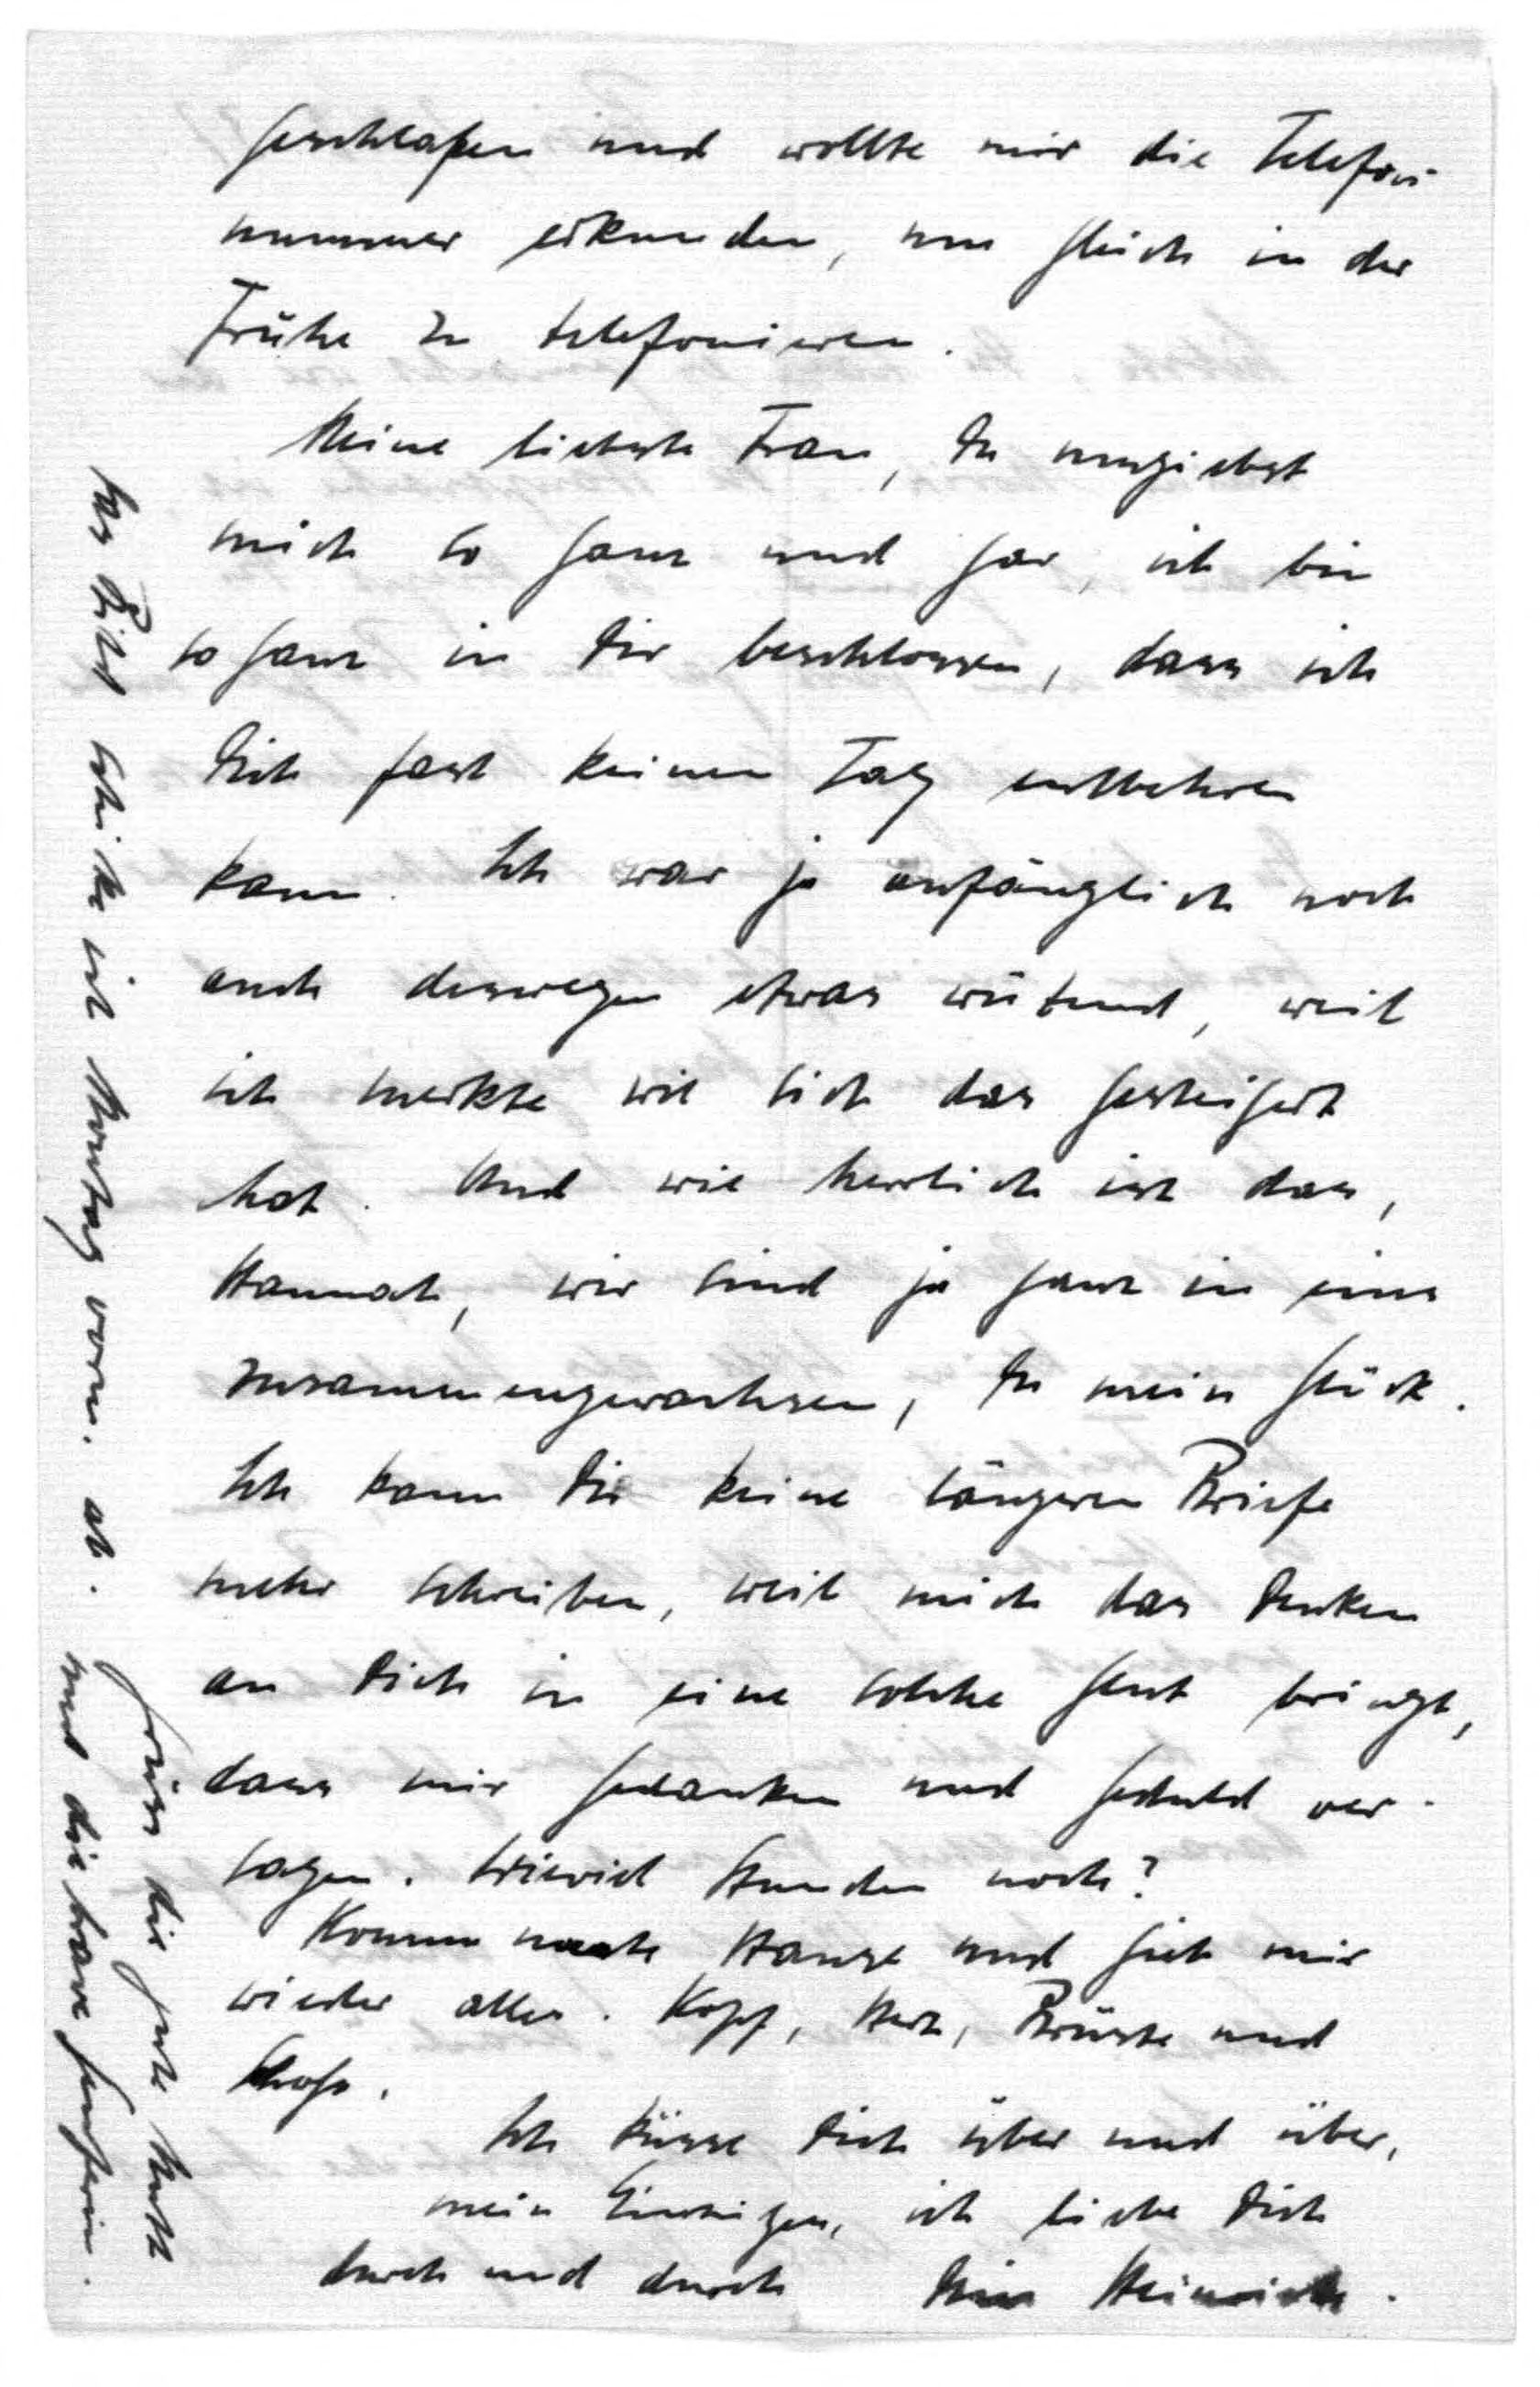 geschlafen und wollte mir die Telefon-
nummer erkunden, um gleich in der
Frühe zu telefonieren.
Meine liebste Frau, Du umgiebst
mich so ganz und gar, ich bin
so ganz in Dir beschlossen, dass ich
Dich fast keinen Tag entbehren
kann. Ich war ja anfänglich noch
auch deswegen etwas wütend, weil
ich merkte wie sich das gesteigert
hat. Und wie herrlich ist das,
Hannah, wir sind ja ganz in eins
zusammengewachsen, Du mein Glück.
Ich kann Dir keine längeren Briefe
mehr schreiben, weil mich das Denken
an Dich in eine solche Glut bringt,
dass mir Gedanken und Geduld ver-
sagen. Wieviel Stunden noch?
Komm nach Hause und gieb mir
wieder alles. Kopf, Herz, Brüste und
Schoss.
Ich küsse Dich über und über,
mein Einziges, ich liebe Dich
durch und durch Dein Heinrich.
Das Bild schicke ich Montag vorm. ab.
Grüss die gute Mutt
und die brave Genferin.